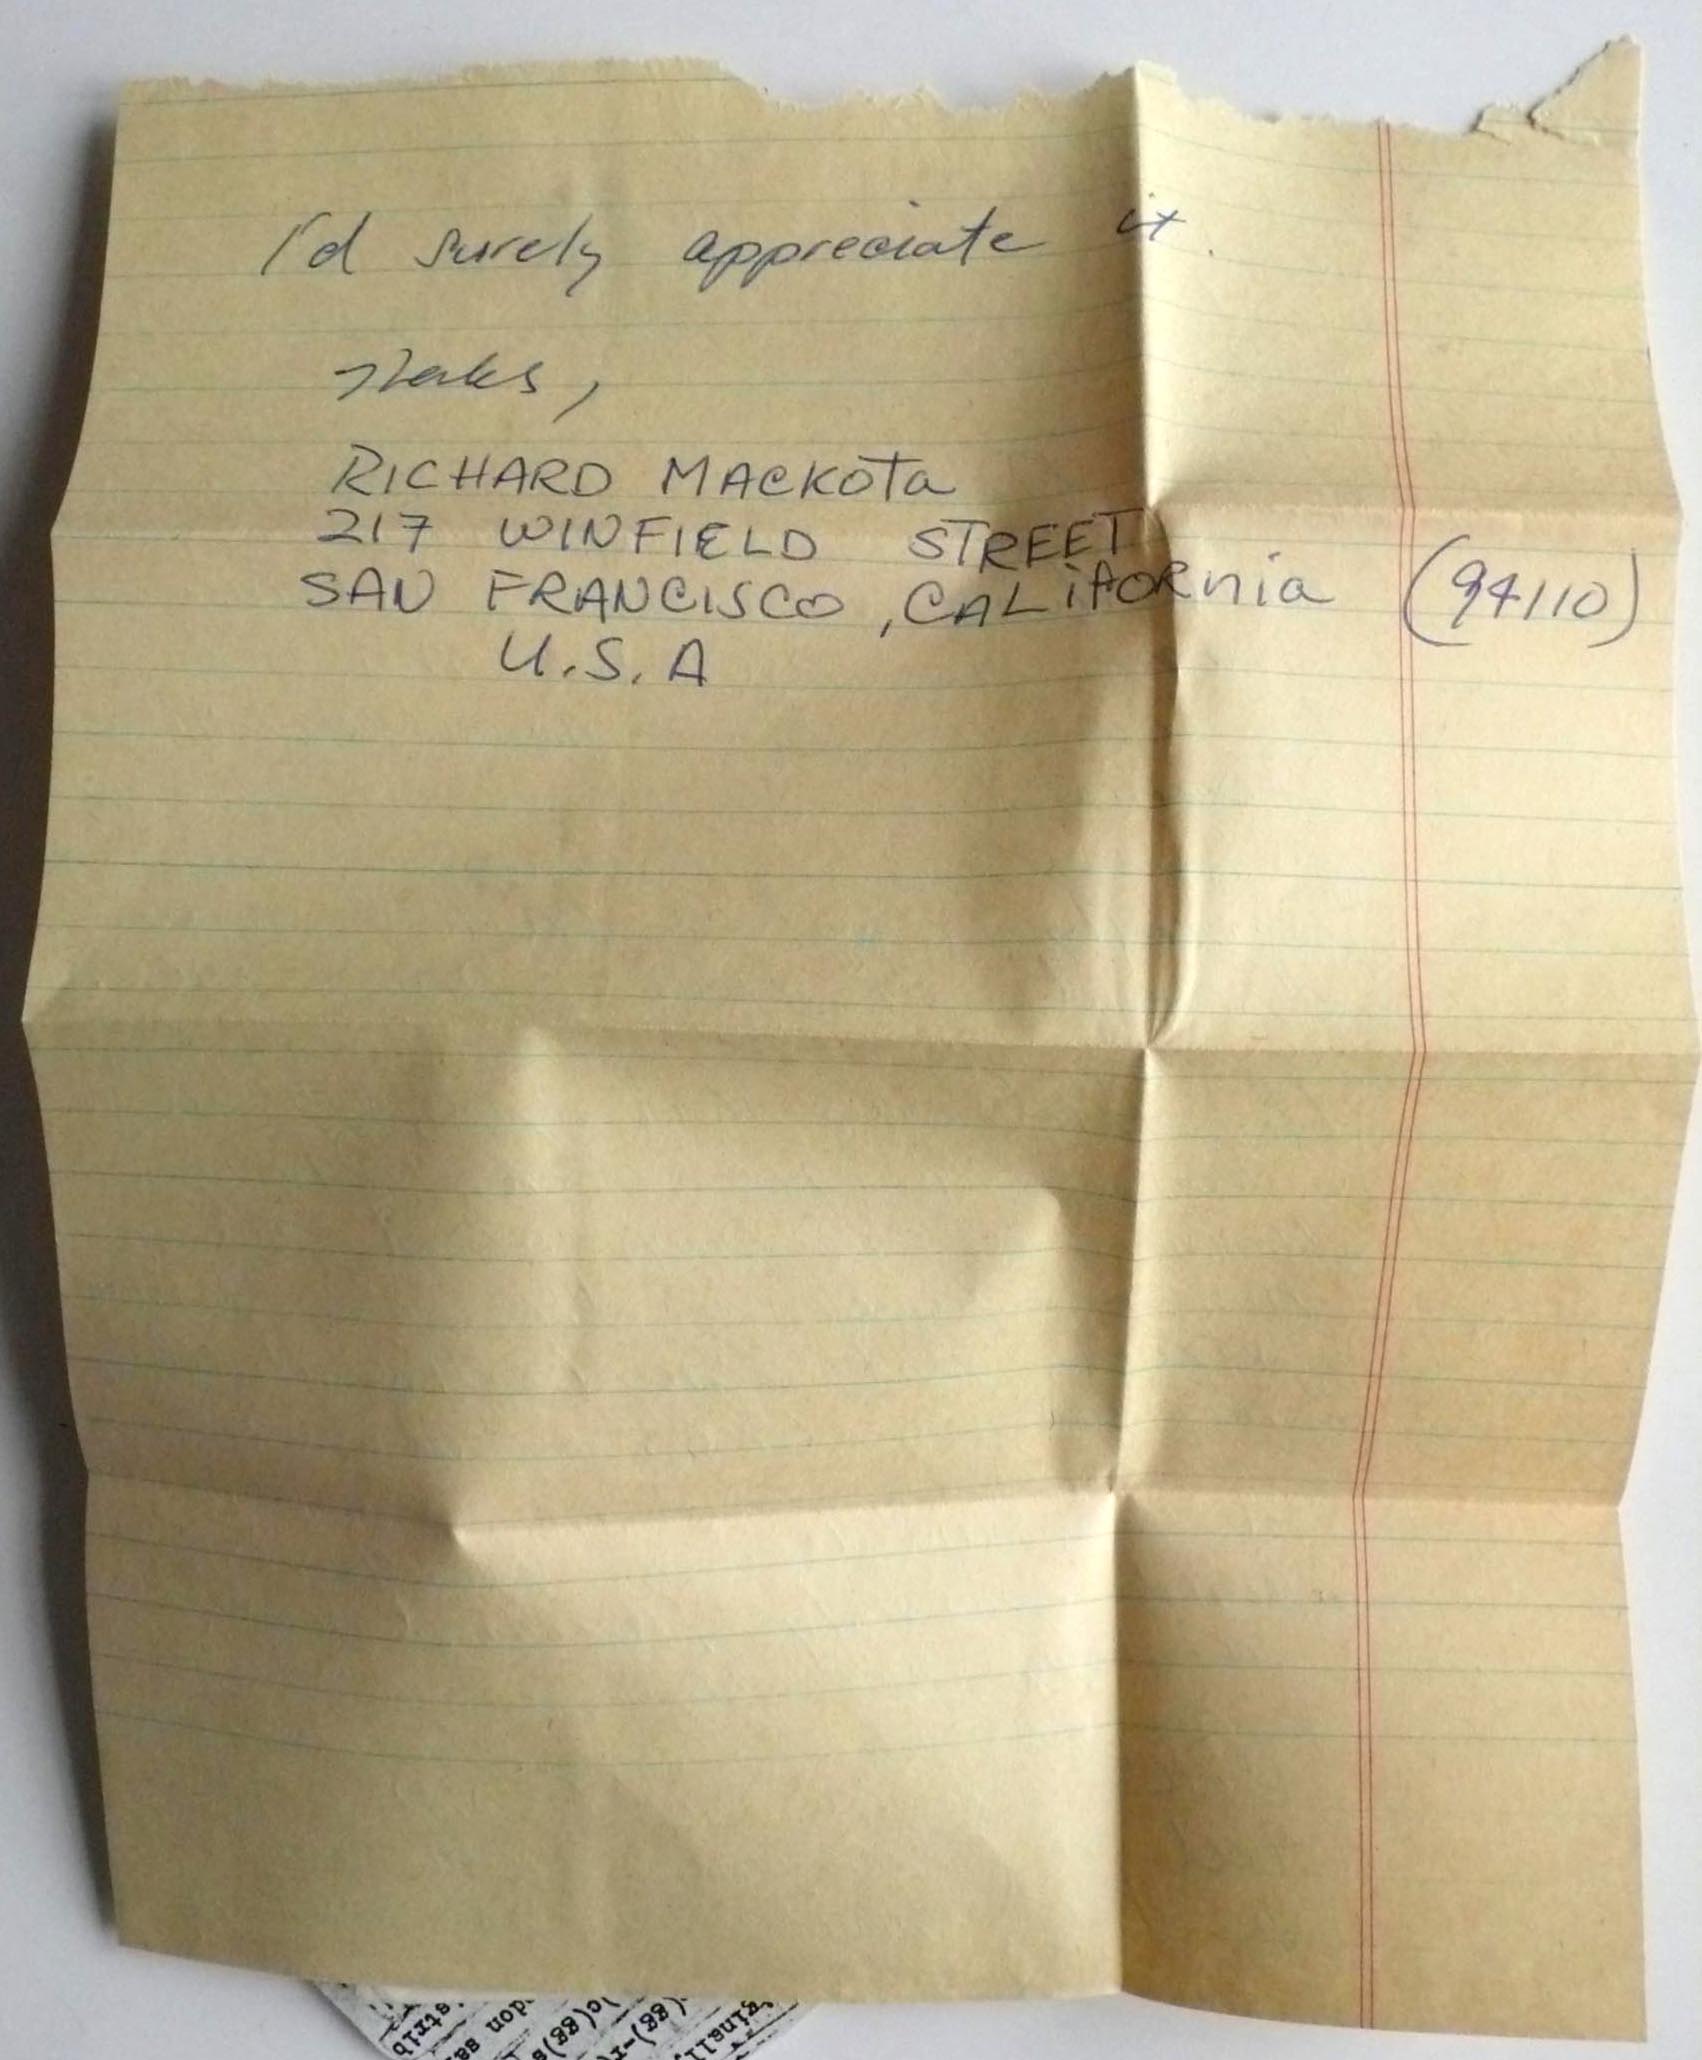 I'd surely appreciate it.
Thanks,
RICHARD MACKOTa
217 WINFIELD STREET
SAN FRANCISCO, CALiFORnia (94110)
U.S.A